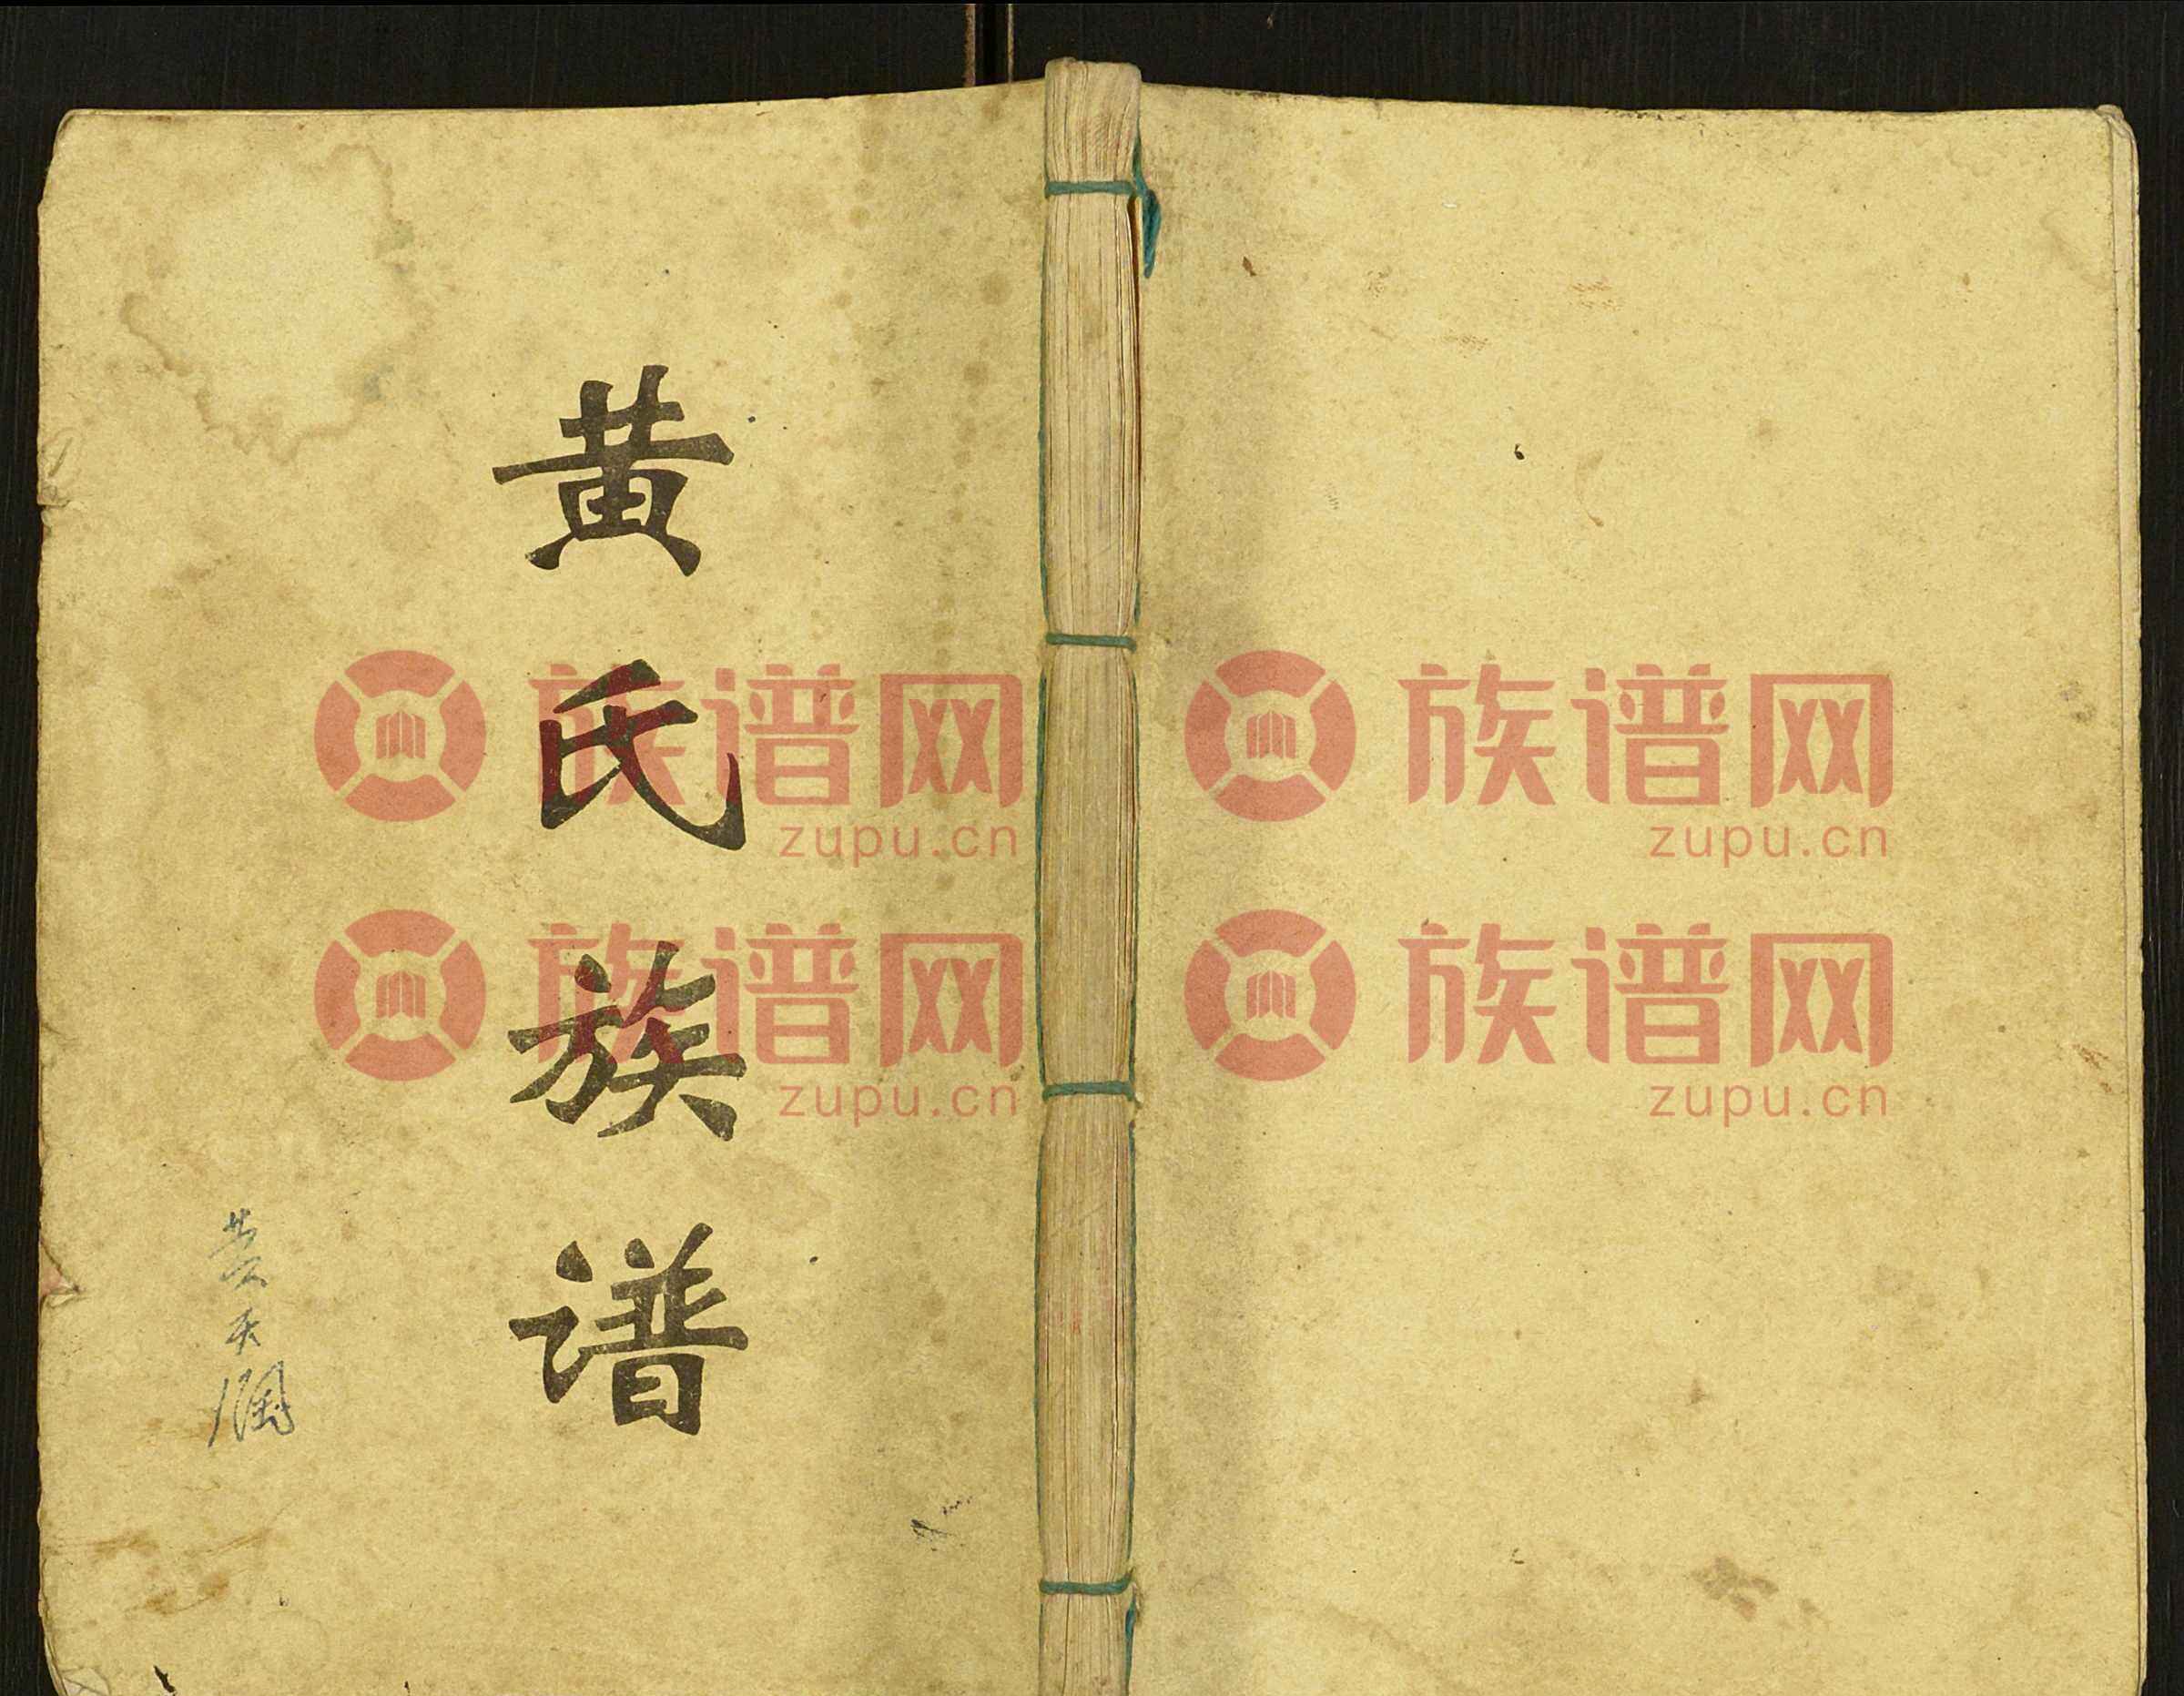 黄氏族谱
黄天润
族谱网
zupu.cn
族谱网
zupu.cn
族谱网
zupu.cn
族谱网
zupu.cn